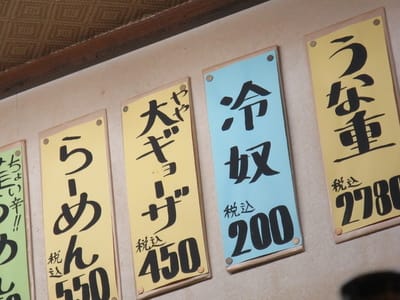 うな重
税込
2780
冷奴
税込
200
やや
大ギョーザ
税込
450
らーめん
税込
550
ちょい辛!!
らめん